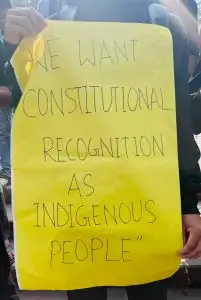 WE WANT
CONSTITUTIONAL
RECOGNITION
AS
INDIGENOUS
PEOPLE"